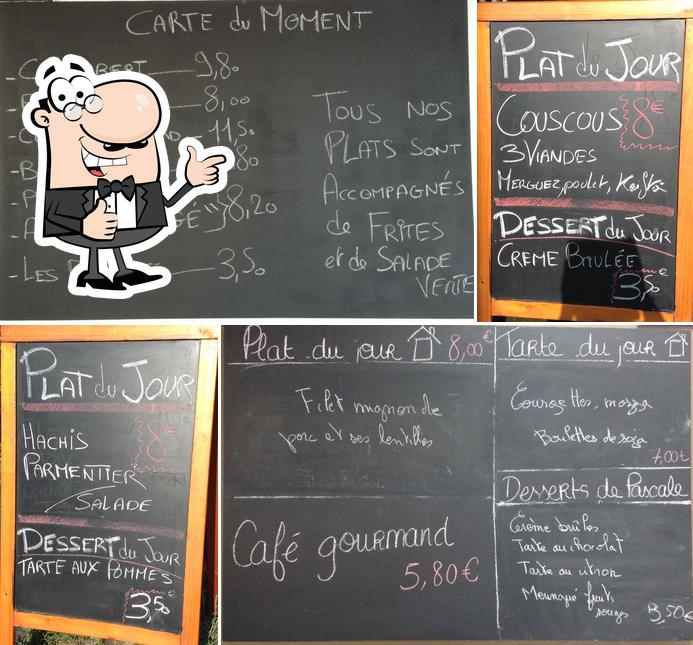 CARTE du MOMENT
9,80
8,00
11,50
80
8,20
-LES 3,50
TOUS NOS
PLATS SONT
ACCOMPAGNÉS
de FRITES
et de SALADE
VERTE
PLAT du JOUR
COUSCOUS 8€
3 VIANDES
MERGUEZ, poulet,
DESSERT du JOUR
CREME BRULÉE
3,50
PLAT du JOUR
HACHIS 8€
PARMENTIER
SALADE
DESSERT du JOUR
TARTE AUX POMMES
3,50
Plat du jour 8,00€
Filet mignon de
porc et ses lentilles
Café gourmand
5,80€
Tarte du jour
Courgettes, mozza
Boulettes de soja
7,00€
Desserts de Pascale
Crème brûlée
Tarte au chocolat
Tarte au citron
Meringué fruits
rouges 3,50€